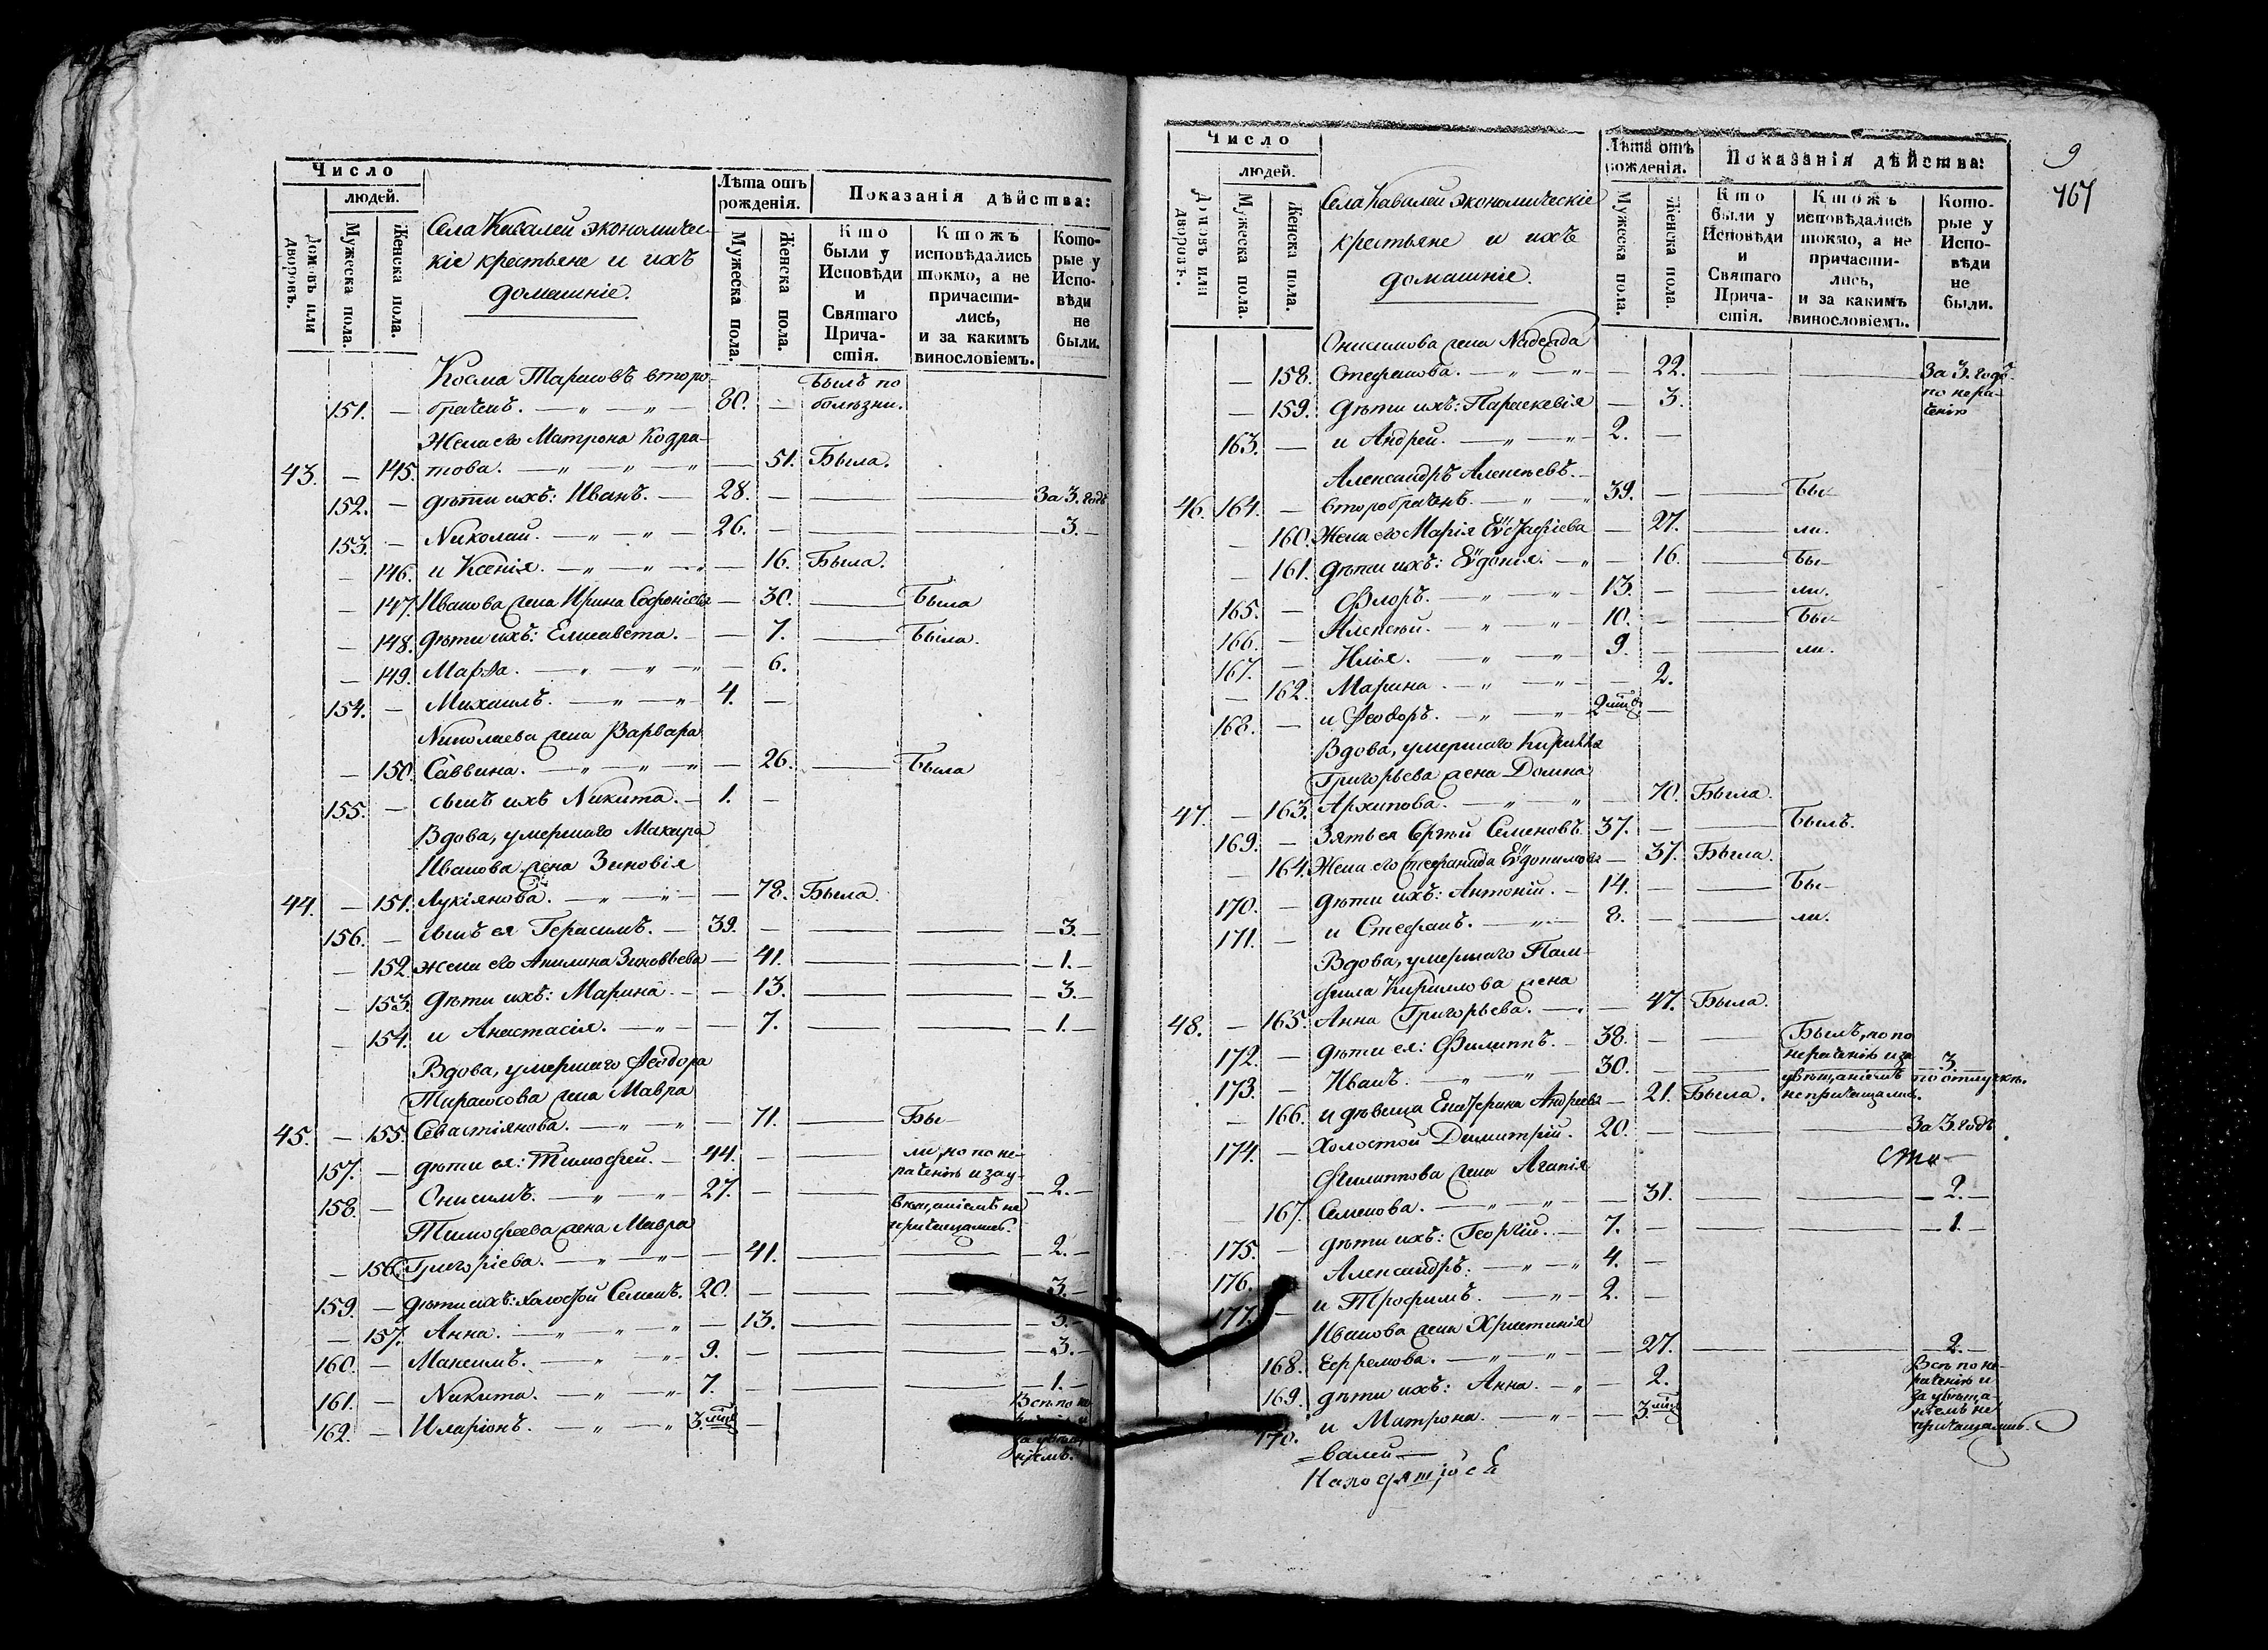 Число
людей.
Домовъ или дворовъ.
Мужеска пола.
Женска пола.
Села Кивалей экономичес-
кіе крестьяне и ихъ
домашніе.
Лѣта отъ рожденія.
Мужеска пола.
Женска пола.
Показанія дѣйства:
Кто были у Исповѣди и Святаго Прича-стія.
Ктожъ исповѣдались токмо, а не причасти-лись, и за какимъ винословіемъ.
Кото-рые у Испо-вѣди не были.
Косма Тарасовъ второ- Былъ по
151. — брачный. — „ — „ — 80. — болѣзни.
Жена его Матрона Кодра-
43. — 145. това. — „ — „ — „ — 51. Была.
152. — дѣти ихъ: Иванъ. — 28. — — — За 3. годъ
153. — Николай. — „ — „ — 26. — — — 3. —
— 146. и Ксенія. — „ — „ — „ — 16. Была.
— 147. Иванова жена Ирина Софоніева — 30. — Была
— 148. дѣти ихъ: Елисавета. — — 7. — Была.
— 149. Марѳа. — „ — „ — „ — 6.
154. — Михаилъ. — „ — „ — 4. —
Николаева жена Варвара
— 150. Саввина. — „ — „ — „ — 26. — Была
155. — сынъ ихъ Никита. — 1. —
Вдова, умершаго Макара
Иванова жена Зиновія
44. — 151. Лукіянова. — „ — „ — — 78. Была.
156. — сынъ ея Герасимъ. — 39. — — — 3. —
— 152. жена его Акилина Зиновьева — 41. — — 1. —
— 153. дѣти ихъ: Марина. — — 13. — — 3. —
— 154. и Анастасія. — „ — — 7. — — 1. —
Вдова, умершаго Ѳеодора
Тарасова жена Мавра
45. — 155. Севастіянова. — „ — „ — 71. — Бы—
157. — дѣти ея: Тимофей. — 44. — — ли, но по не-
рачению и за у-
158. — Онисимъ. — „ — „ — 27. — — вѣщаніемъ не — 2. —
Тимофеева жена Мавра причащались.
— 156. Григоріева. — „ — „ — — 41. — — 2. —
159. — дѣти ихъ: холостой Семенъ. 20. — — — 3. —
— 157. Анна. — „ — „ — „ — 13. — — 3. —
160. — Максимъ. — „ — „ 9. — — — 3. —
161. — Никита. — „ — „ 7. — — — 1. —
162. — Иларіонъ. — „ — „ 3. мцъ — Всѣ по не-
9
767
Число
людей.
Домовъ или дворовъ.
Мужеска пола.
Женска пола.
Села Кавалей экономическіе
крестьяне и ихъ
домашніе.
Лѣта отъ рожденія.
Мужеска пола.
Женска пола.
Показанія дѣйства:
Кто были у Исповѣди и Святаго Прича-стія.
Ктожъ исповѣдались токмо, а не причасти-лись, и за какимъ винословіемъ.
Кото-рые у Испо-вѣди не были.
Онисимова жена Надежда
— 158. Стефанова. — „ — „ — 22. — — За 3. годъ
— 159. дѣти ихъ: Параскевія — 3. по нера-
163. — и Андрей. — „ — „ 2. — ченію
Александръ Алексѣевъ. —
46. 164. — второбраченъ. — „ — „ 39. — — Бы—
— 160. Жена его Марія Евстафіева — 27. — ли.
— 161. дѣти ихъ: Евдокія. — „ — 16. — Бы—
165. — Флоръ. — „ — „ 13. — — ли.
166. — Алексѣй. — „ — „ 10. — — Бы—
167. — Илія. — „ — „ 9. — — ли.
— 162. Марина. — „ — „ — 2.
168. — и Ѳеодоръ. — „ — „ 2 мцъ —
Вдова, умершаго Кирилла
Григорьева жена Домна
47. — 163. Архипова. — „ — „ — 70. Была.
169. — Зять ея Сергѣй Семеновъ. 37. — — Былъ.
— 164. Жена его Стефанида Евдокимова — 37. Была.
170. — дѣти ихъ: Антоній. — 14. — — Бы—
171. — и Стефанъ. — „ — 8. — — ли.
Вдова, умершаго Пам-
фила Кириллова жена
48. — 165. Анна Григорьева. — „ — 47. Была.
172. — дѣти ея: Филиппъ. — 38. — — Былъ, но по
нераченію и за
173. — Иванъ. — „ — „ — 30. — — увѣщаніемъ 3. по отлучкѣ.
— 166. и дѣвица Екатерина Андреева — 21. Была. не причащались.
174. — Холостой Димитрій. 20. — — — За 3. годъ
Филиппова жена Агапія
— 167. Семенова. — „ — „ — 31. — — 2. —
175. — дѣти ихъ: Георгій. — 7. — — — 1. —
176. — Александръ. — „ — „ 4. —
177. — и Трофимъ. — „ — 2. —
Иванова жена Христинія
168. Ефремова. — „ — „ — 27. — — 2. —
169. дѣти ихъ: Анна. — „ — 2. Всѣ по не-
раченію и
170. и Матрона. — „ — — 3. мцъ за увѣща-
ніемъ не
причащались.
=валей—